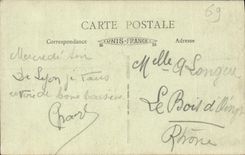 69
CARTE POSTALE
Correspondance UNIS-FRANCE Adresse
Mercredi
De Lyon je vous
envoie de bons baisers
Melle A. Longeu
Le Bois d'Oingt
Rhône